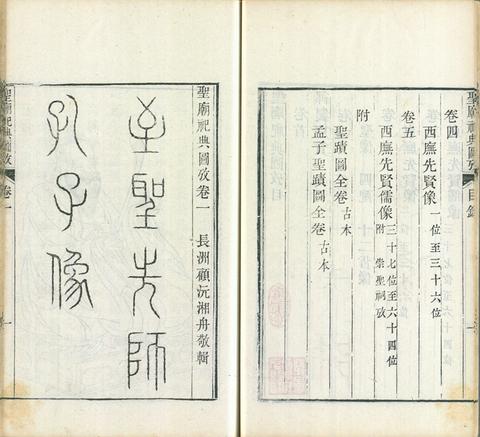 聖廟祀典圖攷 目錄
卷四
西廡先賢像 一位至三十六位
卷五
西廡先賢儒像 三十七位至六十四位 附崇聖祠攷
附
聖蹟圖全卷 古本
孟子聖蹟圖全卷 古本
聖廟祀典圖攷卷一 長洲顧沅湘舟敬輯
至聖先師
孔子像
聖廟祀典圖攷 卷一 一